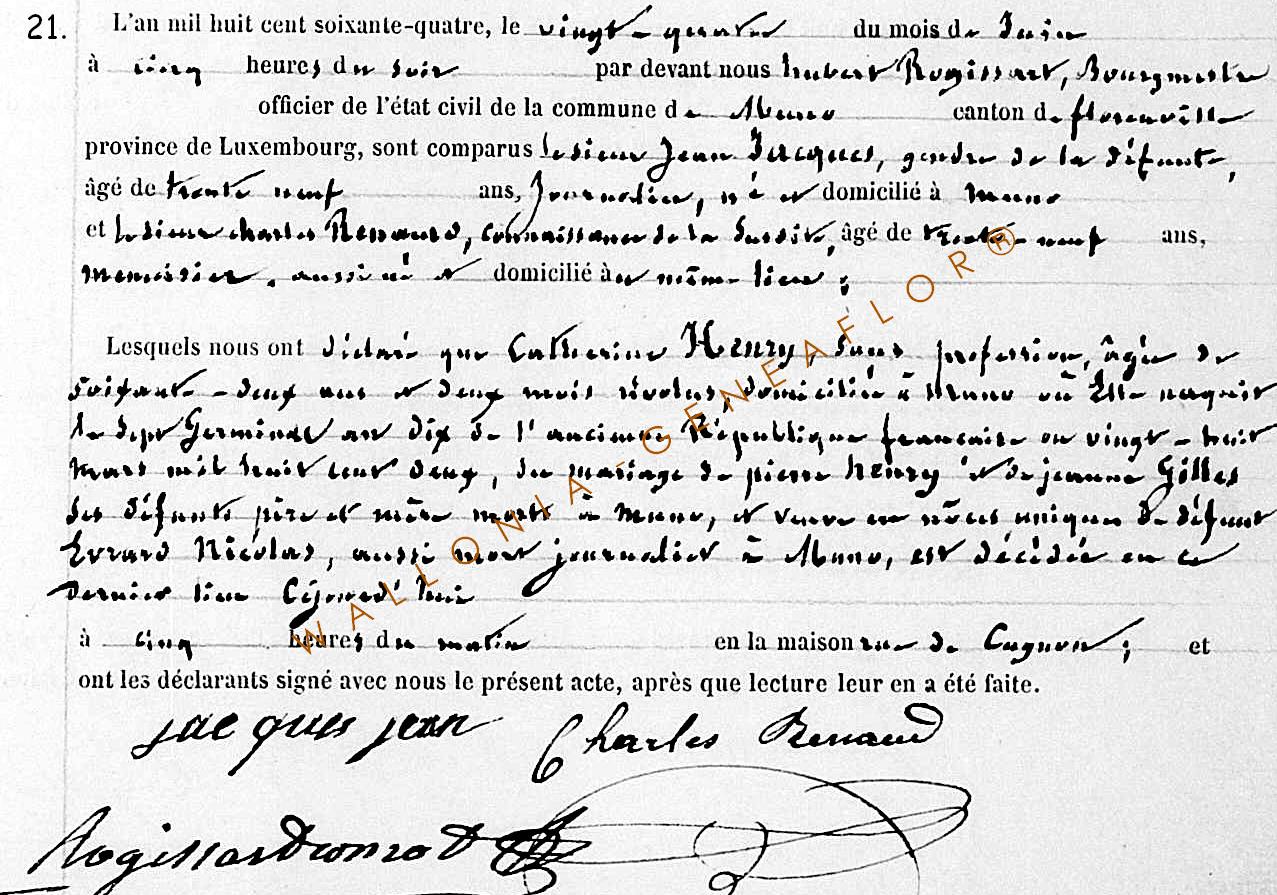 21. L'an mil huit cent soixante-quatre, le vingt-quatre du mois de Juin
à cinq heures du soir par devant nous hubert Rogissart, Bourgmestre
officier de l'état civil de la commune de Muno canton de florenville
province de Luxembourg, sont comparus le sieur Jean Jacques, gendre de la défunte,
âgé de trente neuf ans, Journalier, né et domicilié à Muno
et le sieur charles Renaud, connaissance de la susdite, âgé de trente-neuf ans,
menuisier, aussi né et domicilié au même lieu;
Lesquels nous ont déclaré que Catherine Henry, sans profession, âgée de
soixante-deux ans et deux mois révolus, domiciliée à Muno où Elle naquit
le sept Germinal an dix de l'ancienne République française ou vingt-huit
mars mil huit cent deux, du mariage de pierre henry et de jeanne Gilles
ses défunts père et mère morts à Muno, et veuve en nôces uniques de défunt
Evrard Nicolas, aussi mort journalier à Muno, est décédée en ce
dernier lieu Cejourd'hui
à cinq heures du matin en la maison rue de Cugnon; et
ont les déclarants signé avec nous le présent acte, après que lecture leur en a été faite.
jacques jean Charles Renaud
WALLONIA-GENEAFLOR®